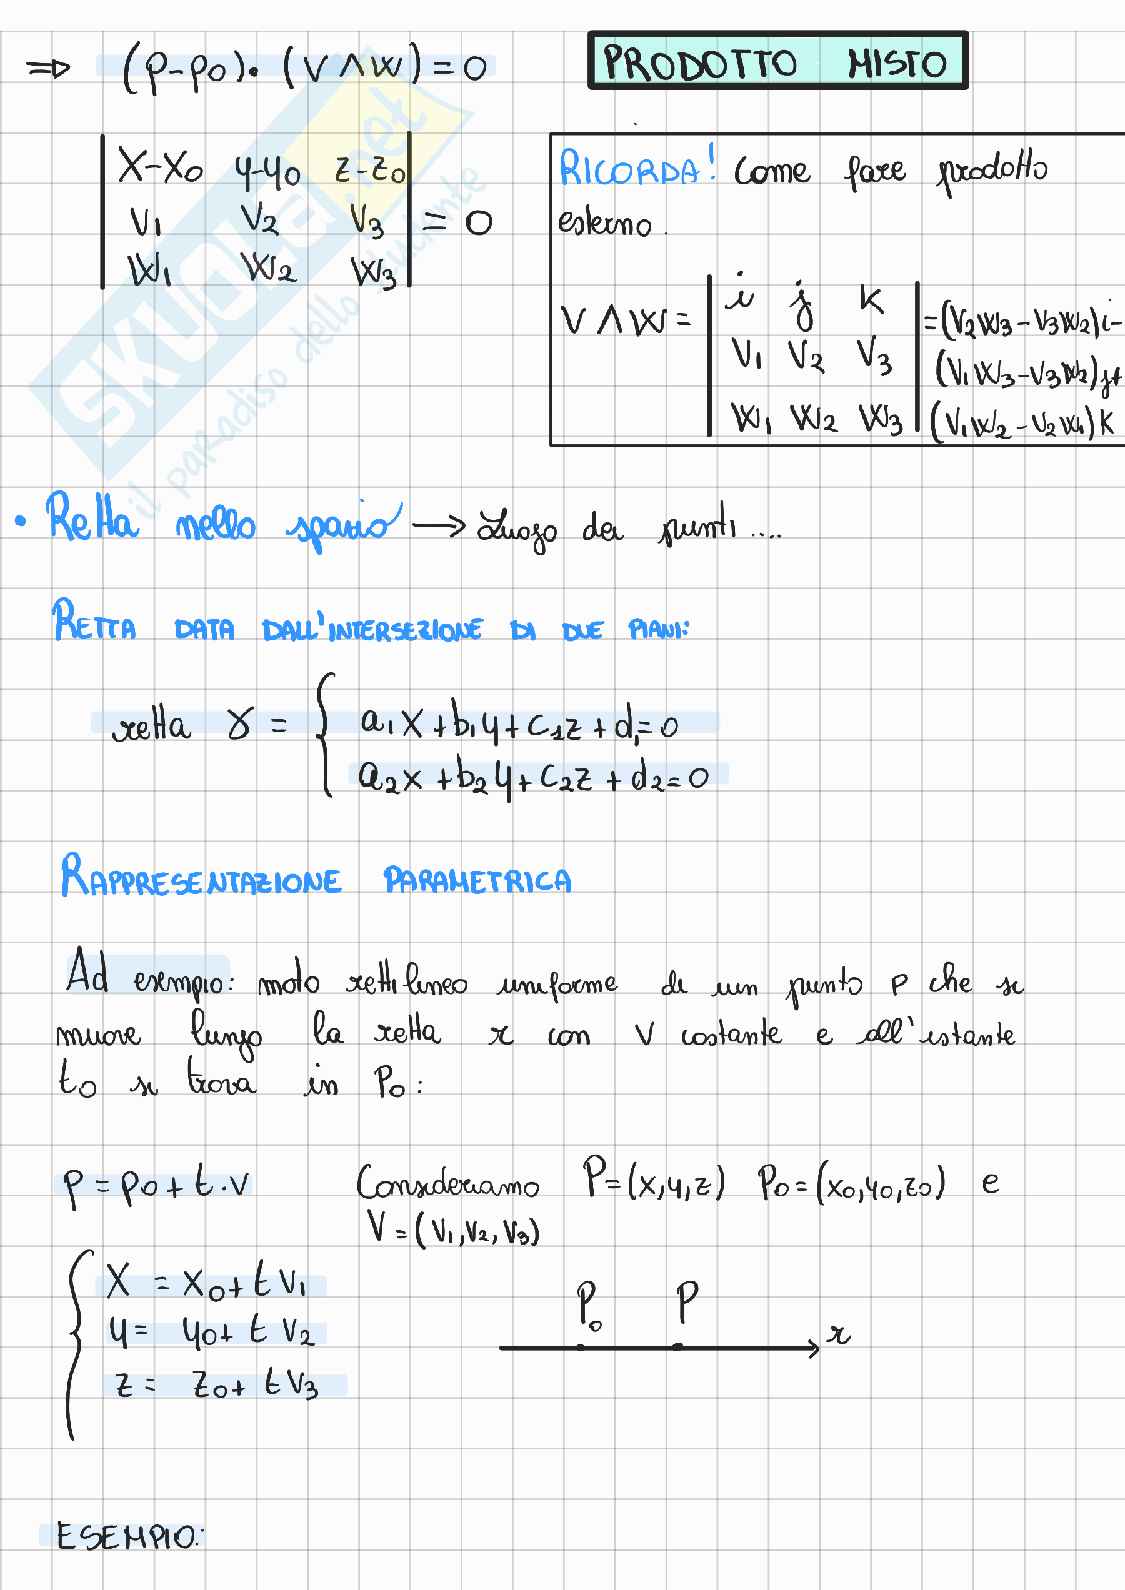 ⇒ (p-p0)·(V∧W)=0
PRODOTTO MISTO
| X-X0 y-y0 z-z0 |
| V1 V2 V3 | = 0
| W1 W2 W3 |
RICORDA! Come fare prodotto
esterno.
V∧W = | i j k | =(V2W3-V3W2)i-
| V1 V2 V3 | (V1W3-V3W2)j+
| W1 W2 W3 | (V1W2-V2W1)K
• Retta nello spazio → Luogo dei punti....
RETTA DATA DALL'INTERSEZIONE DI DUE PIANI:
retta r = { a1X+b1y+c1z+d1=0
a2x+b2y+c2z+d2=0
RAPPRESENTAZIONE PARAMETRICA
Ad esempio: moto rettilineo uniforme di un punto P che si
muove lungo la retta r con V costante e all'istante
t0 si trova in P0:
P=p0+t·v Consideriamo P=(x,y,z) P0=(x0,y0,z0) e
V=(V1,V2,V3)
{ X = X0+t V1
y = y0+t V2
z = z0+t V3
P0 P r
ESEMPIO:
SKUOLA.net
il paradiso dello studente